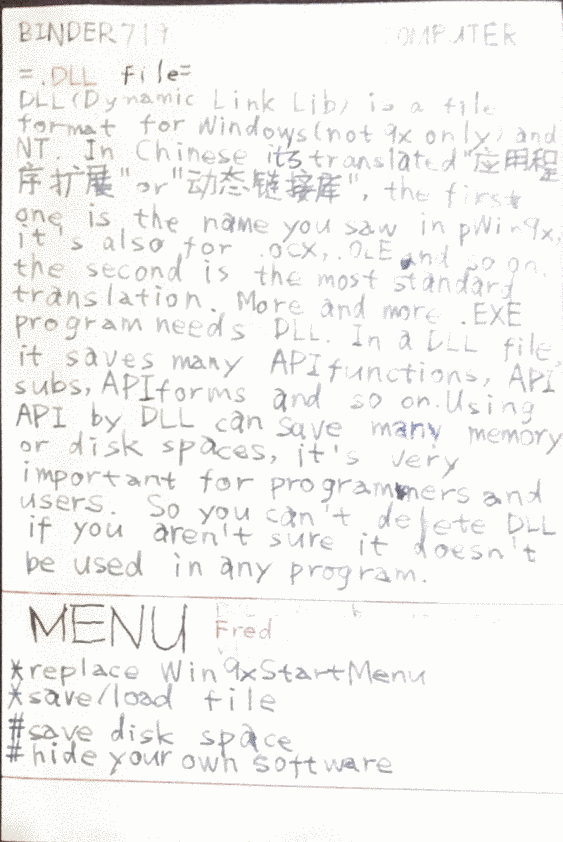 BINDER717 COMPUTER
=.DLL file=
DLL(Dynamic Link Lib) is a file
format for Windows(not 9x only) and
NT. In Chinese its translated "应用程
序扩展" or "动态链接库", the first
one is the name you saw in pWin9x,
it's also for .OCX, .OLE and so on.
the second is the most standard
translation. More and more .EXE
program needs DLL. In a DLL file,
it saves many API functions, API
subs, API forms and so on. Using
API by DLL can save many memory
or disk spaces, it's very
important for programmers and
users. So you can't delete DLL
if you aren't sure it doesn't
be used in any program.
MENU Fred
*replace Win9xStartMenu
*save/load file
#save disk space
#hide your own software